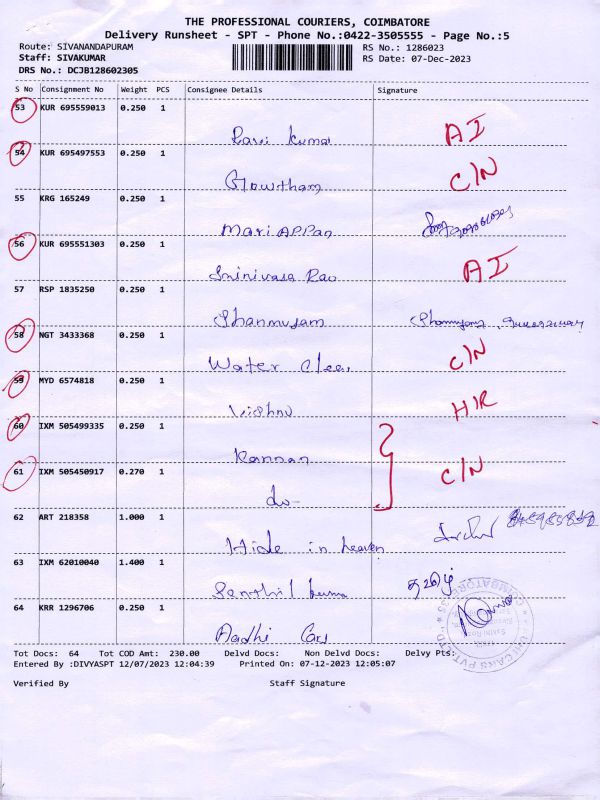 THE PROFESSIONAL COURIERS, COIMBATORE
Delivery Runsheet - SPT - Phone No.:0422-3505555 - Page No.:5
Route: SIVANANDAPURAM RS No.: 1286023
Staff: SIVAKUMAR RS Date: 07-Dec-2023
DRS No.: DCJB128602305
S No Consignment No Weight PCS Consignee Details Signature
53 KUR 695559013 0.250 1
Ravi Kumar AI
54 KUR 695497553 0.250 1
Gowtham C/N
55 KRG 165249 0.250 1
MariAPPan
56 KUR 695551303 0.250 1
Srinivasa Rao AI
57 RSP 1835250 0.250 1
Shanmugam
58 NGT 3433368 0.250 1
Water C/N
59 MYD 6574818 0.250 1
Vishnu H/R
60 IXM 505499335 0.250 1
Kannan
61 IXM 505450917 0.270 1 C/N
do-
62 ART 218358 1.000 1
Hide in heaven
63 IXM 62010040 1.400 1
Senthil kumar தமிழ்
64 KRR 1296706 0.250 1
Aadhi Cars
Tot Docs: 64 Tot COD Amt: 230.00 Delvd Docs: Non Delvd Docs: Delvy Pts:
Entered By :DIVYASPT 12/07/2023 12:04:39 Printed On: 07-12-2023 12:05:07
Verified By Staff Signature